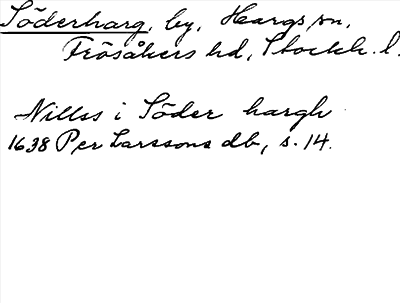 Söderharg, by, Hargs sn,
Frösåkers hd, Stockh. l.
Nillss i Söder hargh
1638 Per Larssons db, s. 14.